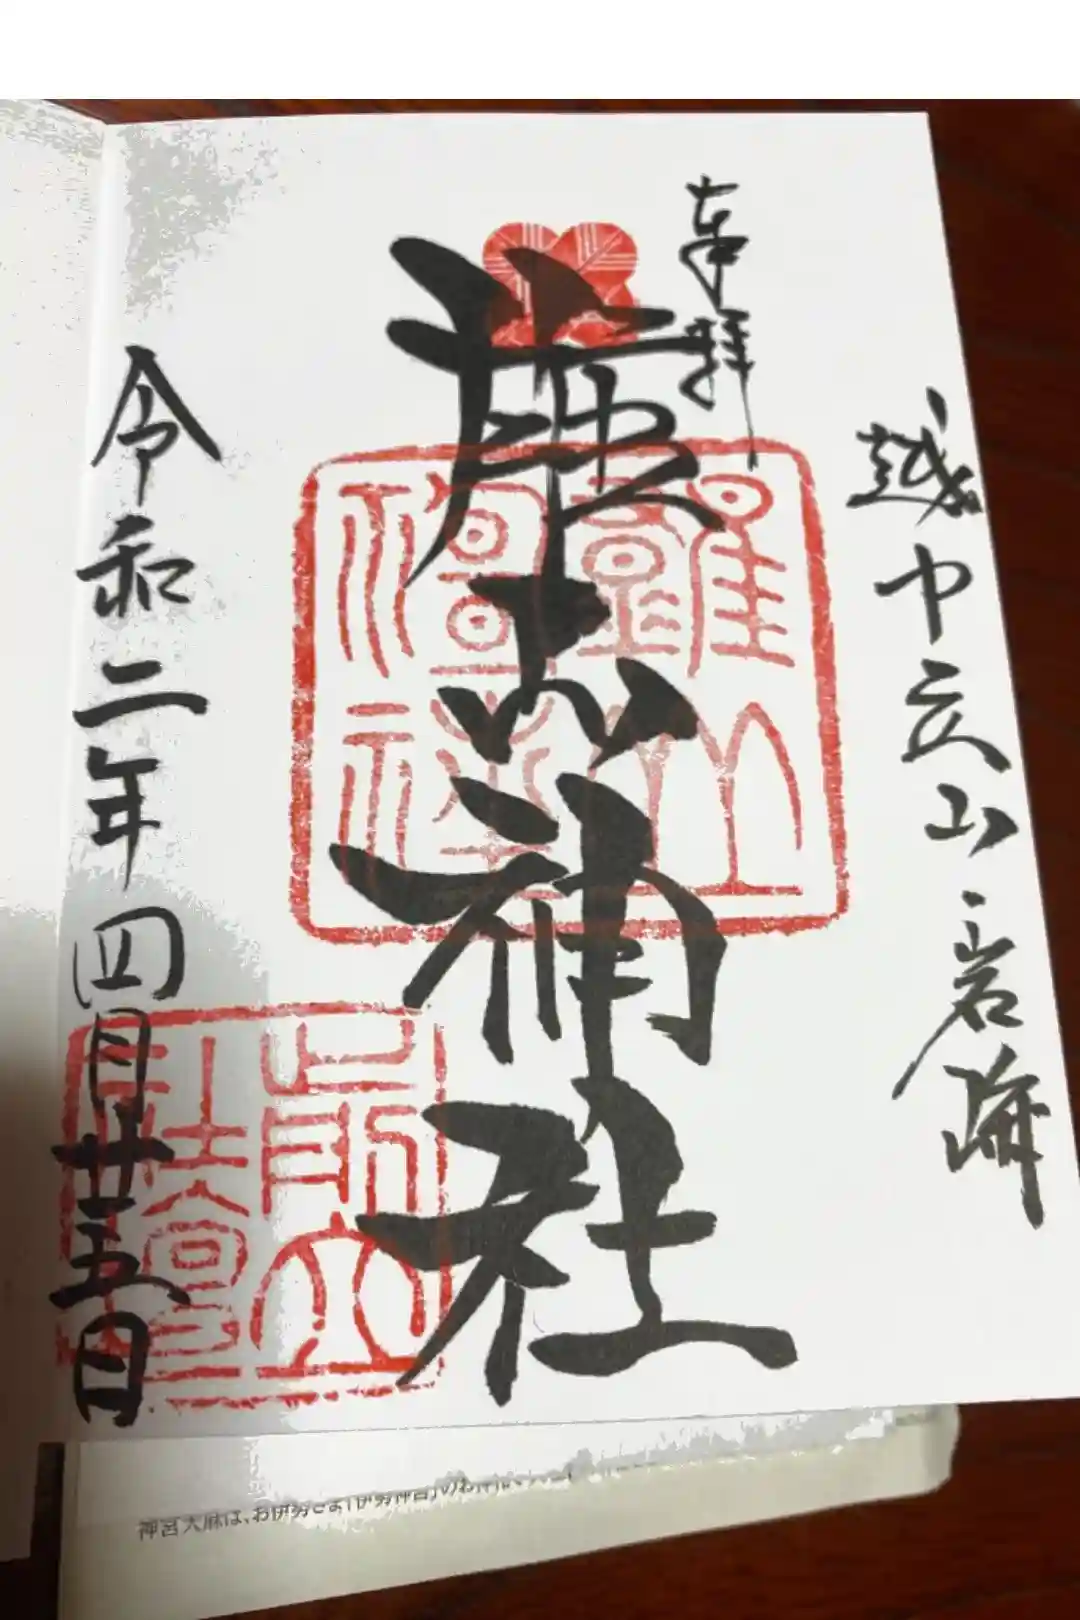 越中立山岩峅
奉拝
雄山神社
前立
社壇
令和二年四月廿五日
神宮大麻は、お伊勢さま「伊勢神宮」のお神札